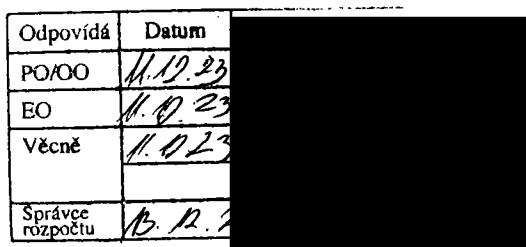 Odpovídá Datum
PO/OO 11.12.23
EO 11.12.23
Věcně 11.12.23
Správce
rozpočtu 13.12.2